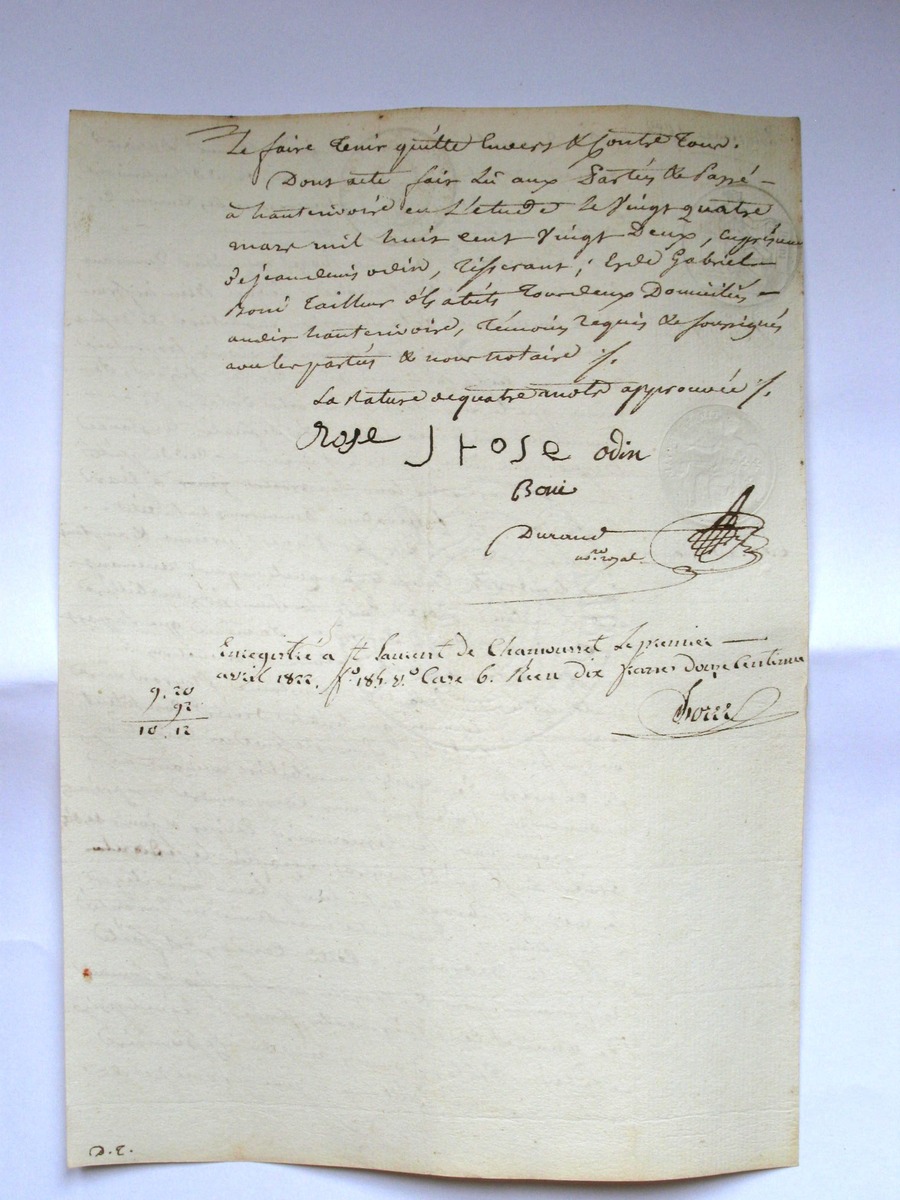 le faire tenir quitte Envers & Contre tous.
Dont acte fait Lû aux Parties & Passé
à hauterivoire en L'etude Le Vingt quatre
mars mil huit cent Vingt Deux, en présence
de jean denis odin, tisserant; Et de Gabriel
Boni tailleur d'habits tous deux Domiciliés
audit hauterivoire, témoins requis & soussignés
avec les parties & nous notaire ./.
La rature de quatre mots approuvée ./.
Rose J rose odin
Boni
Durand
no.re royal
Enregistré à St Laurent de Chamousset Le premier
avril 1822. fo. 185. vo. Case 6. Reçu dix francs douze Centimes
9. 20
92
10. 12
D. E.